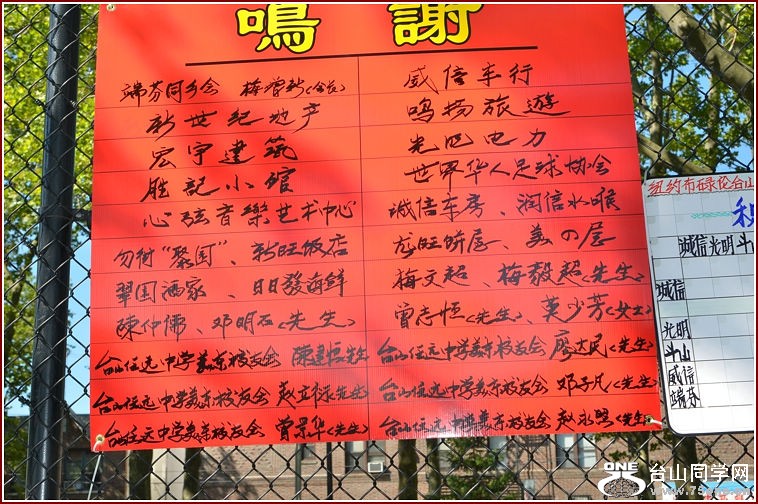 鳴謝
端芬同乡会 梅增新(会长)
新世纪地产
宏宇建筑
胜記小館
心弦音樂艺术中心
勿街"聚国"、新旺饭店
翠园酒家、日日發海鲜
陳仲儒、邓明石(先生)
台山任远中学美东校友会 陳建良先生
台山任远中学美东校友会 赵立禄先生
台山任远中学美东校友会 曾景华(先生)
威信车行
鸣扬旅遊
光巴电力
世界华人足球协会
诚信车房、润信水喉
龙旺饼屋、美の屋
梅文超、梅毅超(先生)
曾志恒(先生)、莫少芳(女士)
台山任远中学美东校友会 廖达民(先生)
台山任远中学美东校友会 邓子凡(先生)
台山任远中学美东校友会 赵永照(先生)
纽约布碌伦台山
秋
诚信光明斗山
诚信
光明
斗山
威信
端芬
ONE 台山同学网